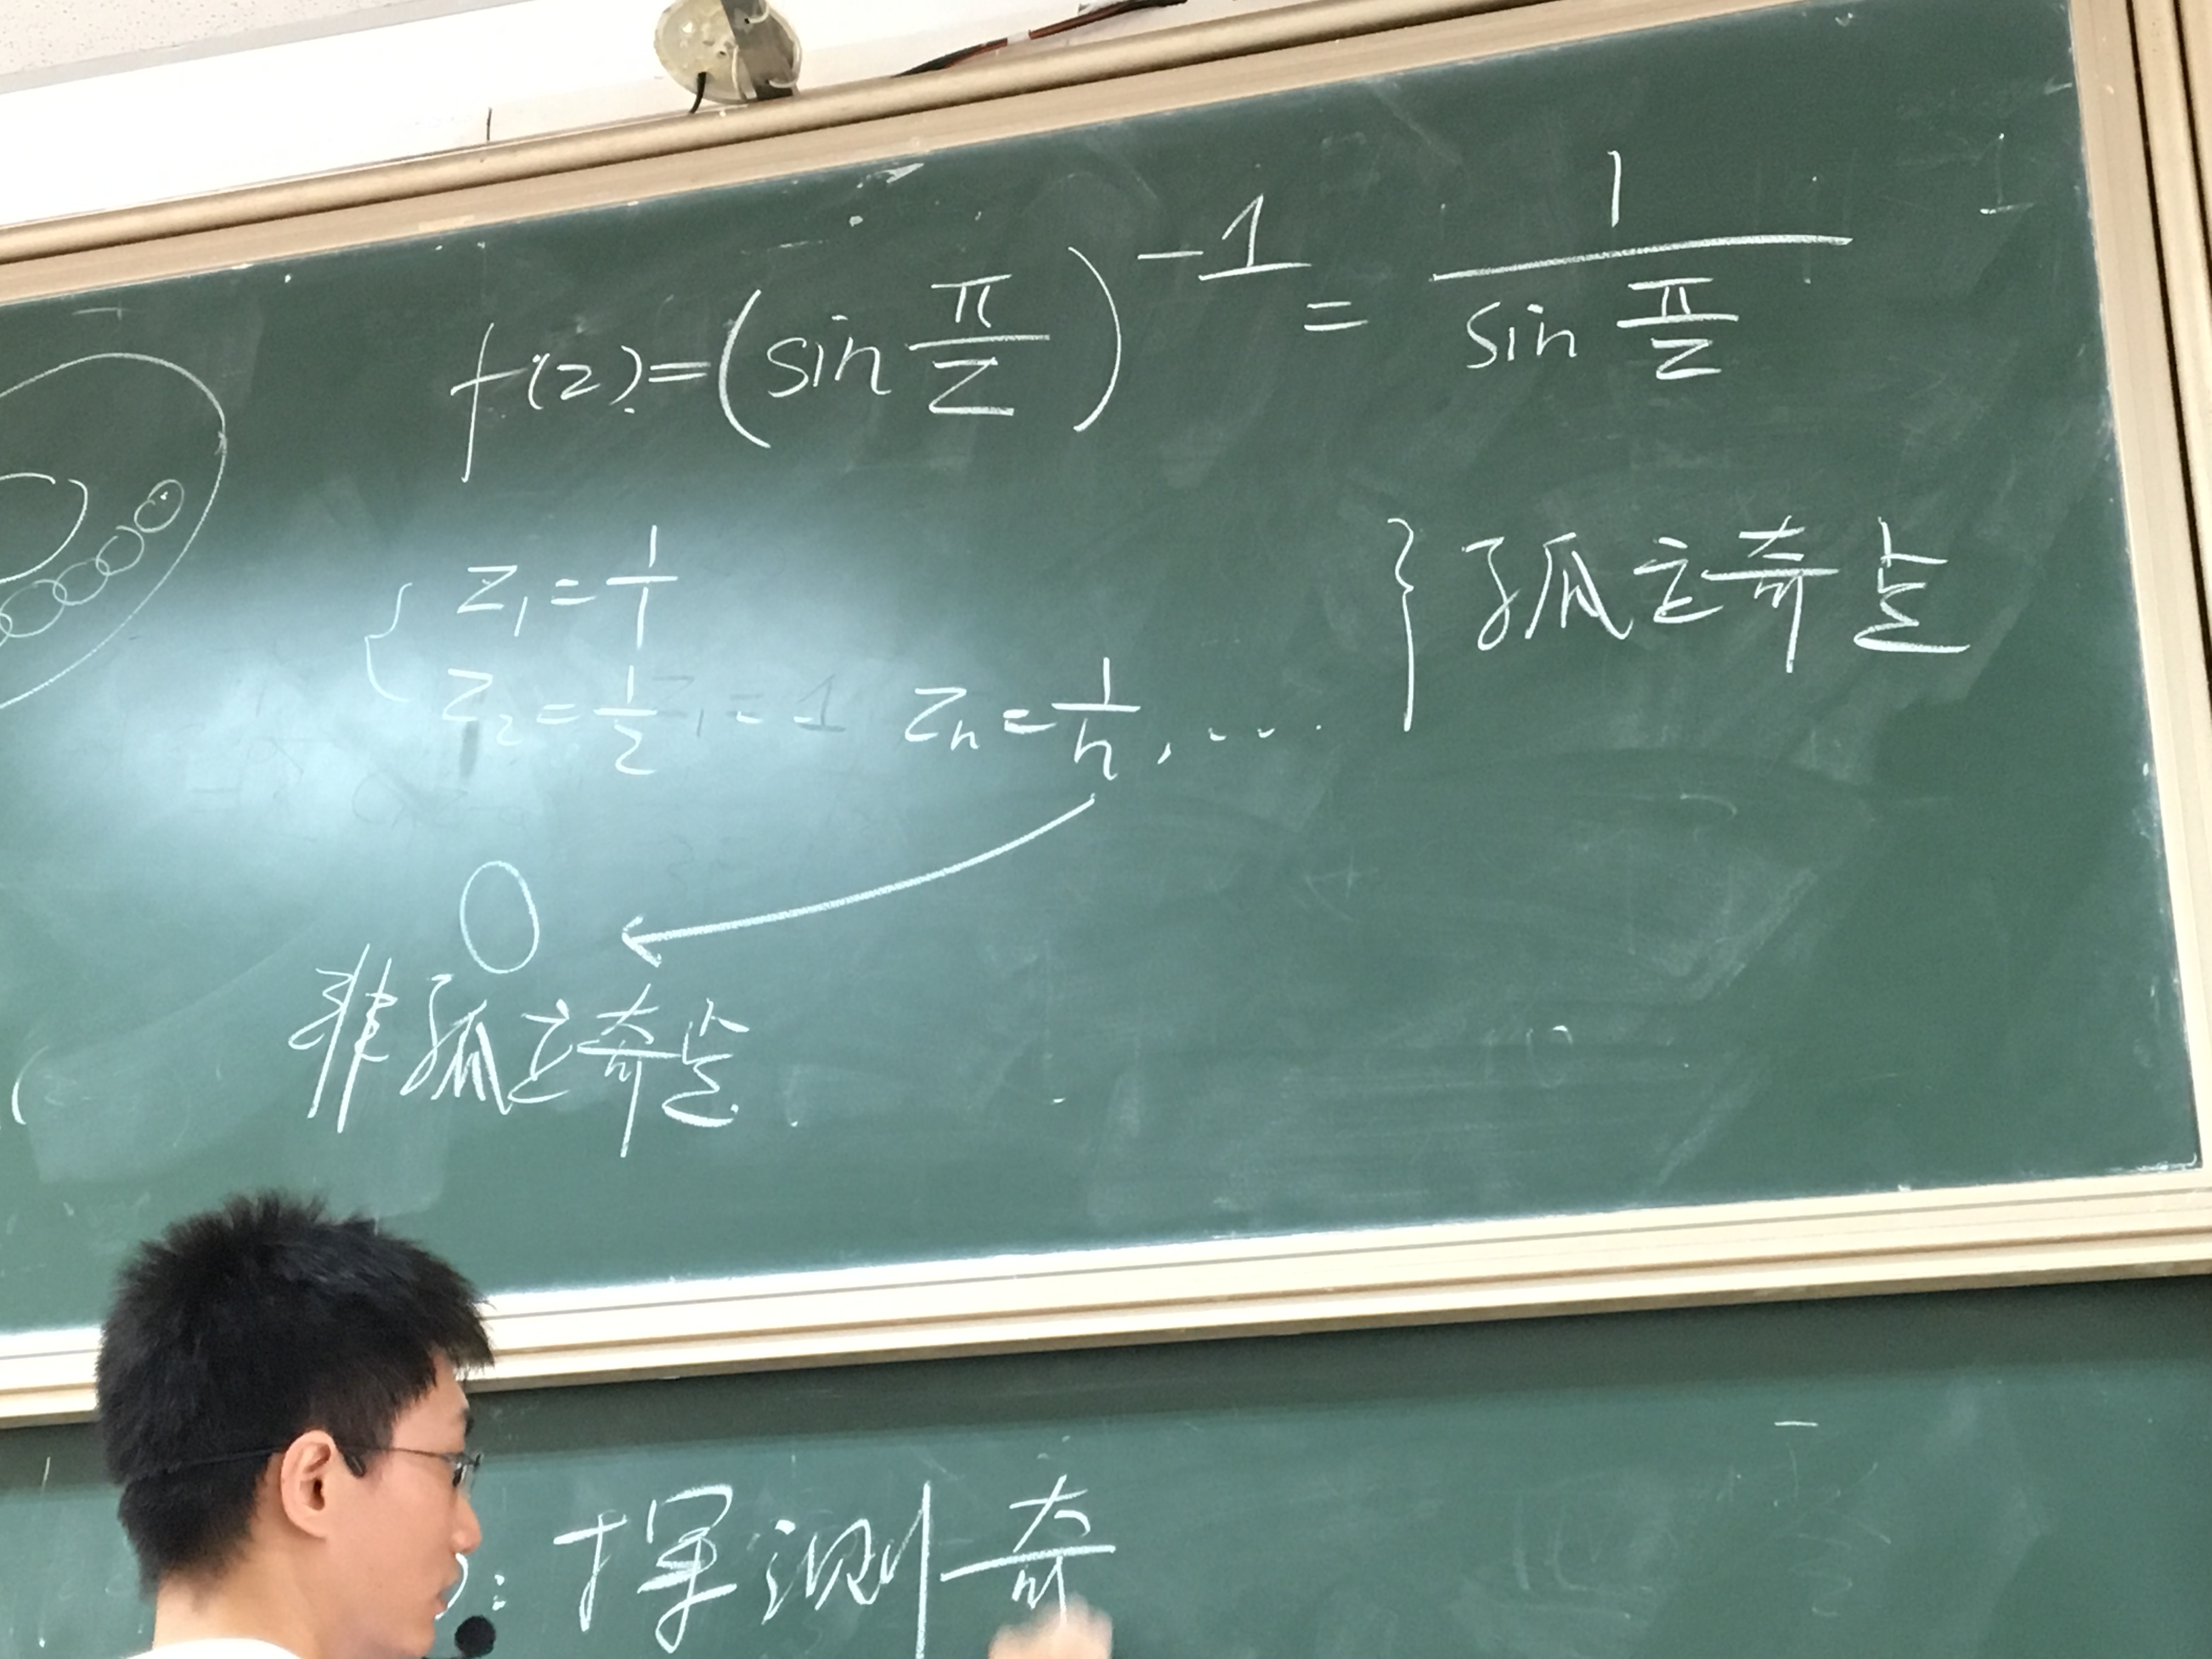 f(z)=(sin π/z)^-1 = 1/(sin π/z)
{ z₁=1/1
z₂=1/2 zₙ=1/n, .... } 孤立奇点
0
非孤立奇点.
: 探测奇